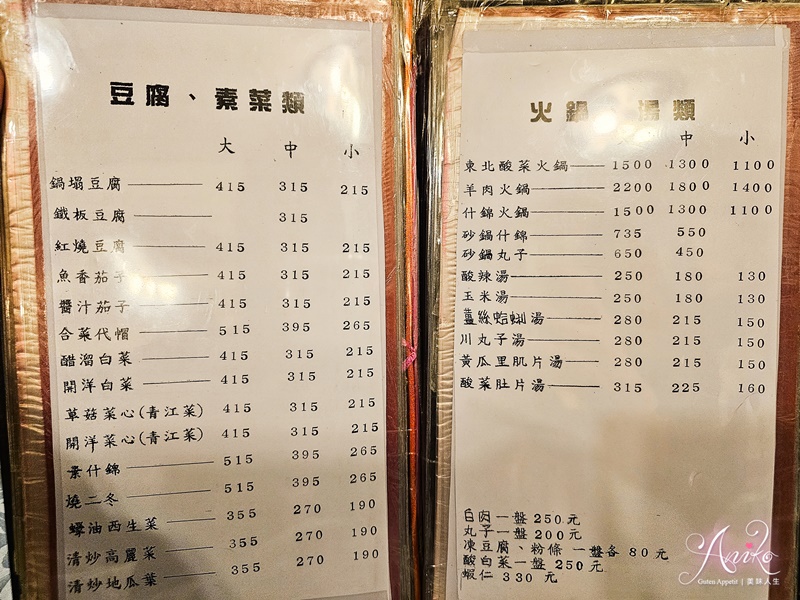 豆腐、素菜類
大 中 小
鍋塌豆腐 415 315 215
鐵板豆腐 315
紅燒豆腐 415 315 215
魚香茄子 415 315 215
醬汁茄子 415 315 215
合菜代帽 515 395 265
醋溜白菜 415 315 215
開洋白菜 415 315 215
草菇菜心(青江菜) 415 315 215
開洋菜心(青江菜) 415 315 215
素什錦 515 395 265
燒二冬 515 395 265
蠔油西生菜 355 270 190
清炒高麗菜 355 270 190
清炒地瓜葉 355 270 190
火鍋 湯類
中 小
東北酸菜火鍋 1500 1300 1100
羊肉火鍋 2200 1800 1400
什錦火鍋 1500 1300 1100
砂鍋什錦 735 550
砂鍋丸子 650 450
酸辣湯 250 180 130
玉米湯 250 180 130
薑絲蛤蜊湯 280 215 150
川丸子湯 280 215 150
黃瓜里肌片湯 280 215 150
酸菜肚片湯 315 225 160
白肉一盤 250元
丸子一盤 200元
凍豆腐、粉條 一盤各 80元
酸白菜一盤 250元
蝦仁 330 元
Aniko
Guten Appetit | 美味人生